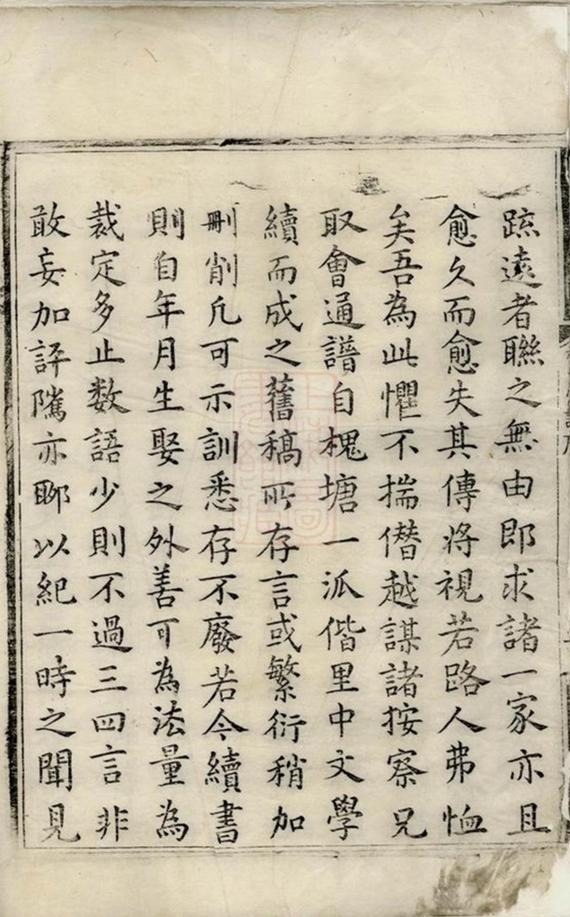 疏遠者聯之無由即求諸一家亦且
愈久而愈失其傳將視若路人弗恤
矣吾為此懼不揣僭越謀諸按察兄
取會通譜自槐塘一派偕里中文學
續而成之舊稿所存言或繁衍稍加
刪削凡可示訓悉存不廢若今續書
則自年月生娶之外善可為法量為
裁定多止数語少則不過三四言非
敢妄加評隲亦聊以紀一時之聞見